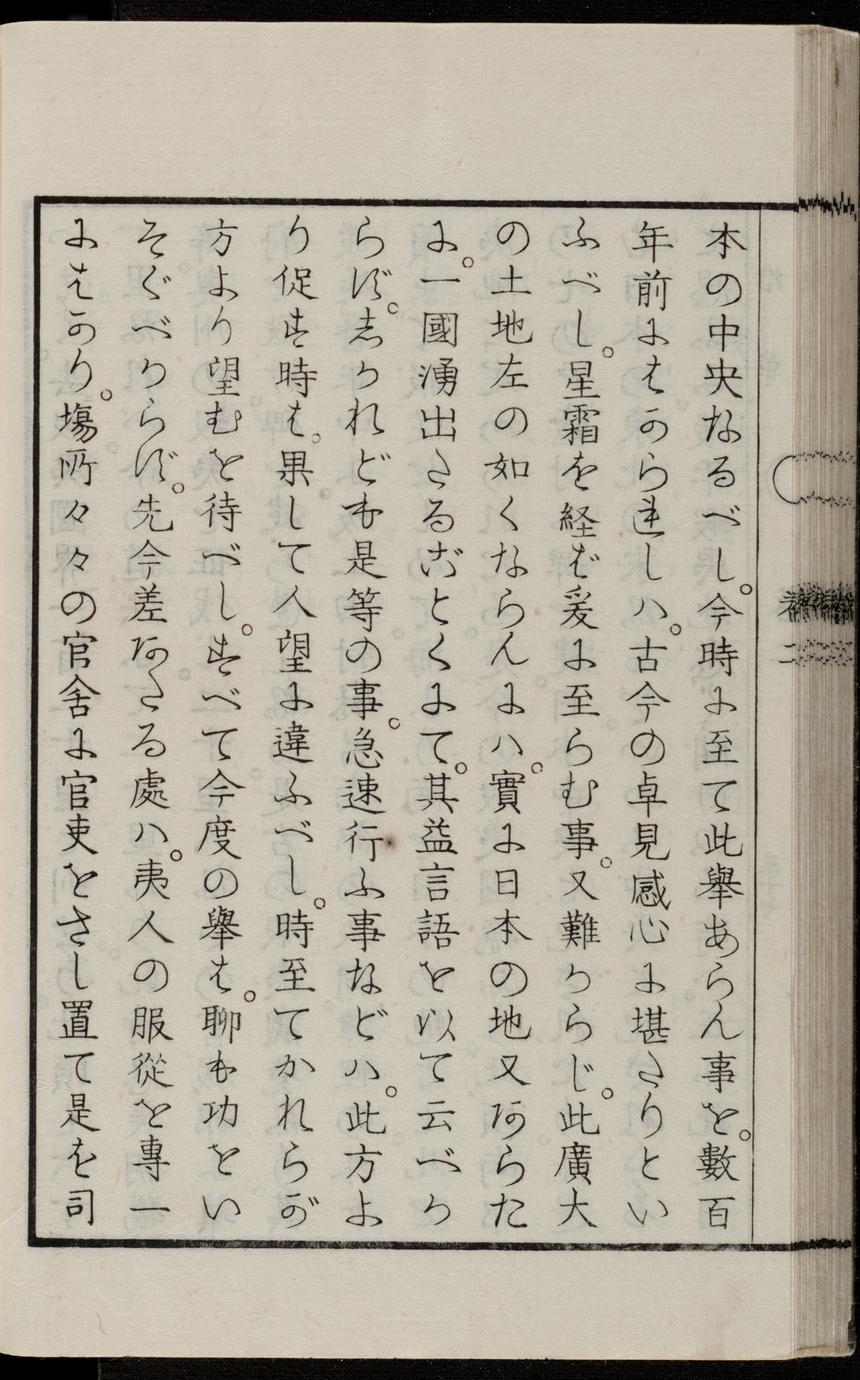 本の中央なるべし。今時に至て此舉あらん事を。數百
年前にはかられしハ。古今の卓見感心に堪たりとい
ふべし。星霜を経ば爰に至らむ事。又難からじ。此廣大
の土地左の如くならんにハ。實に日本の地又あらた
に。一國湧出たるがごとくにて。其益言語を以て云べか
らず。しかれども是等の事。急速行ふ事などハ。此方よ
り促す時は。果して人望に違ふべし。時至てかれらが
方より望むを待べし。すべて今度の舉は。聊も功をい
そぐべからず。先今差あたる處ハ。夷人の服從を專一
にはかり。塲所々々の官舍に官吏をさし置て是を司
卷二